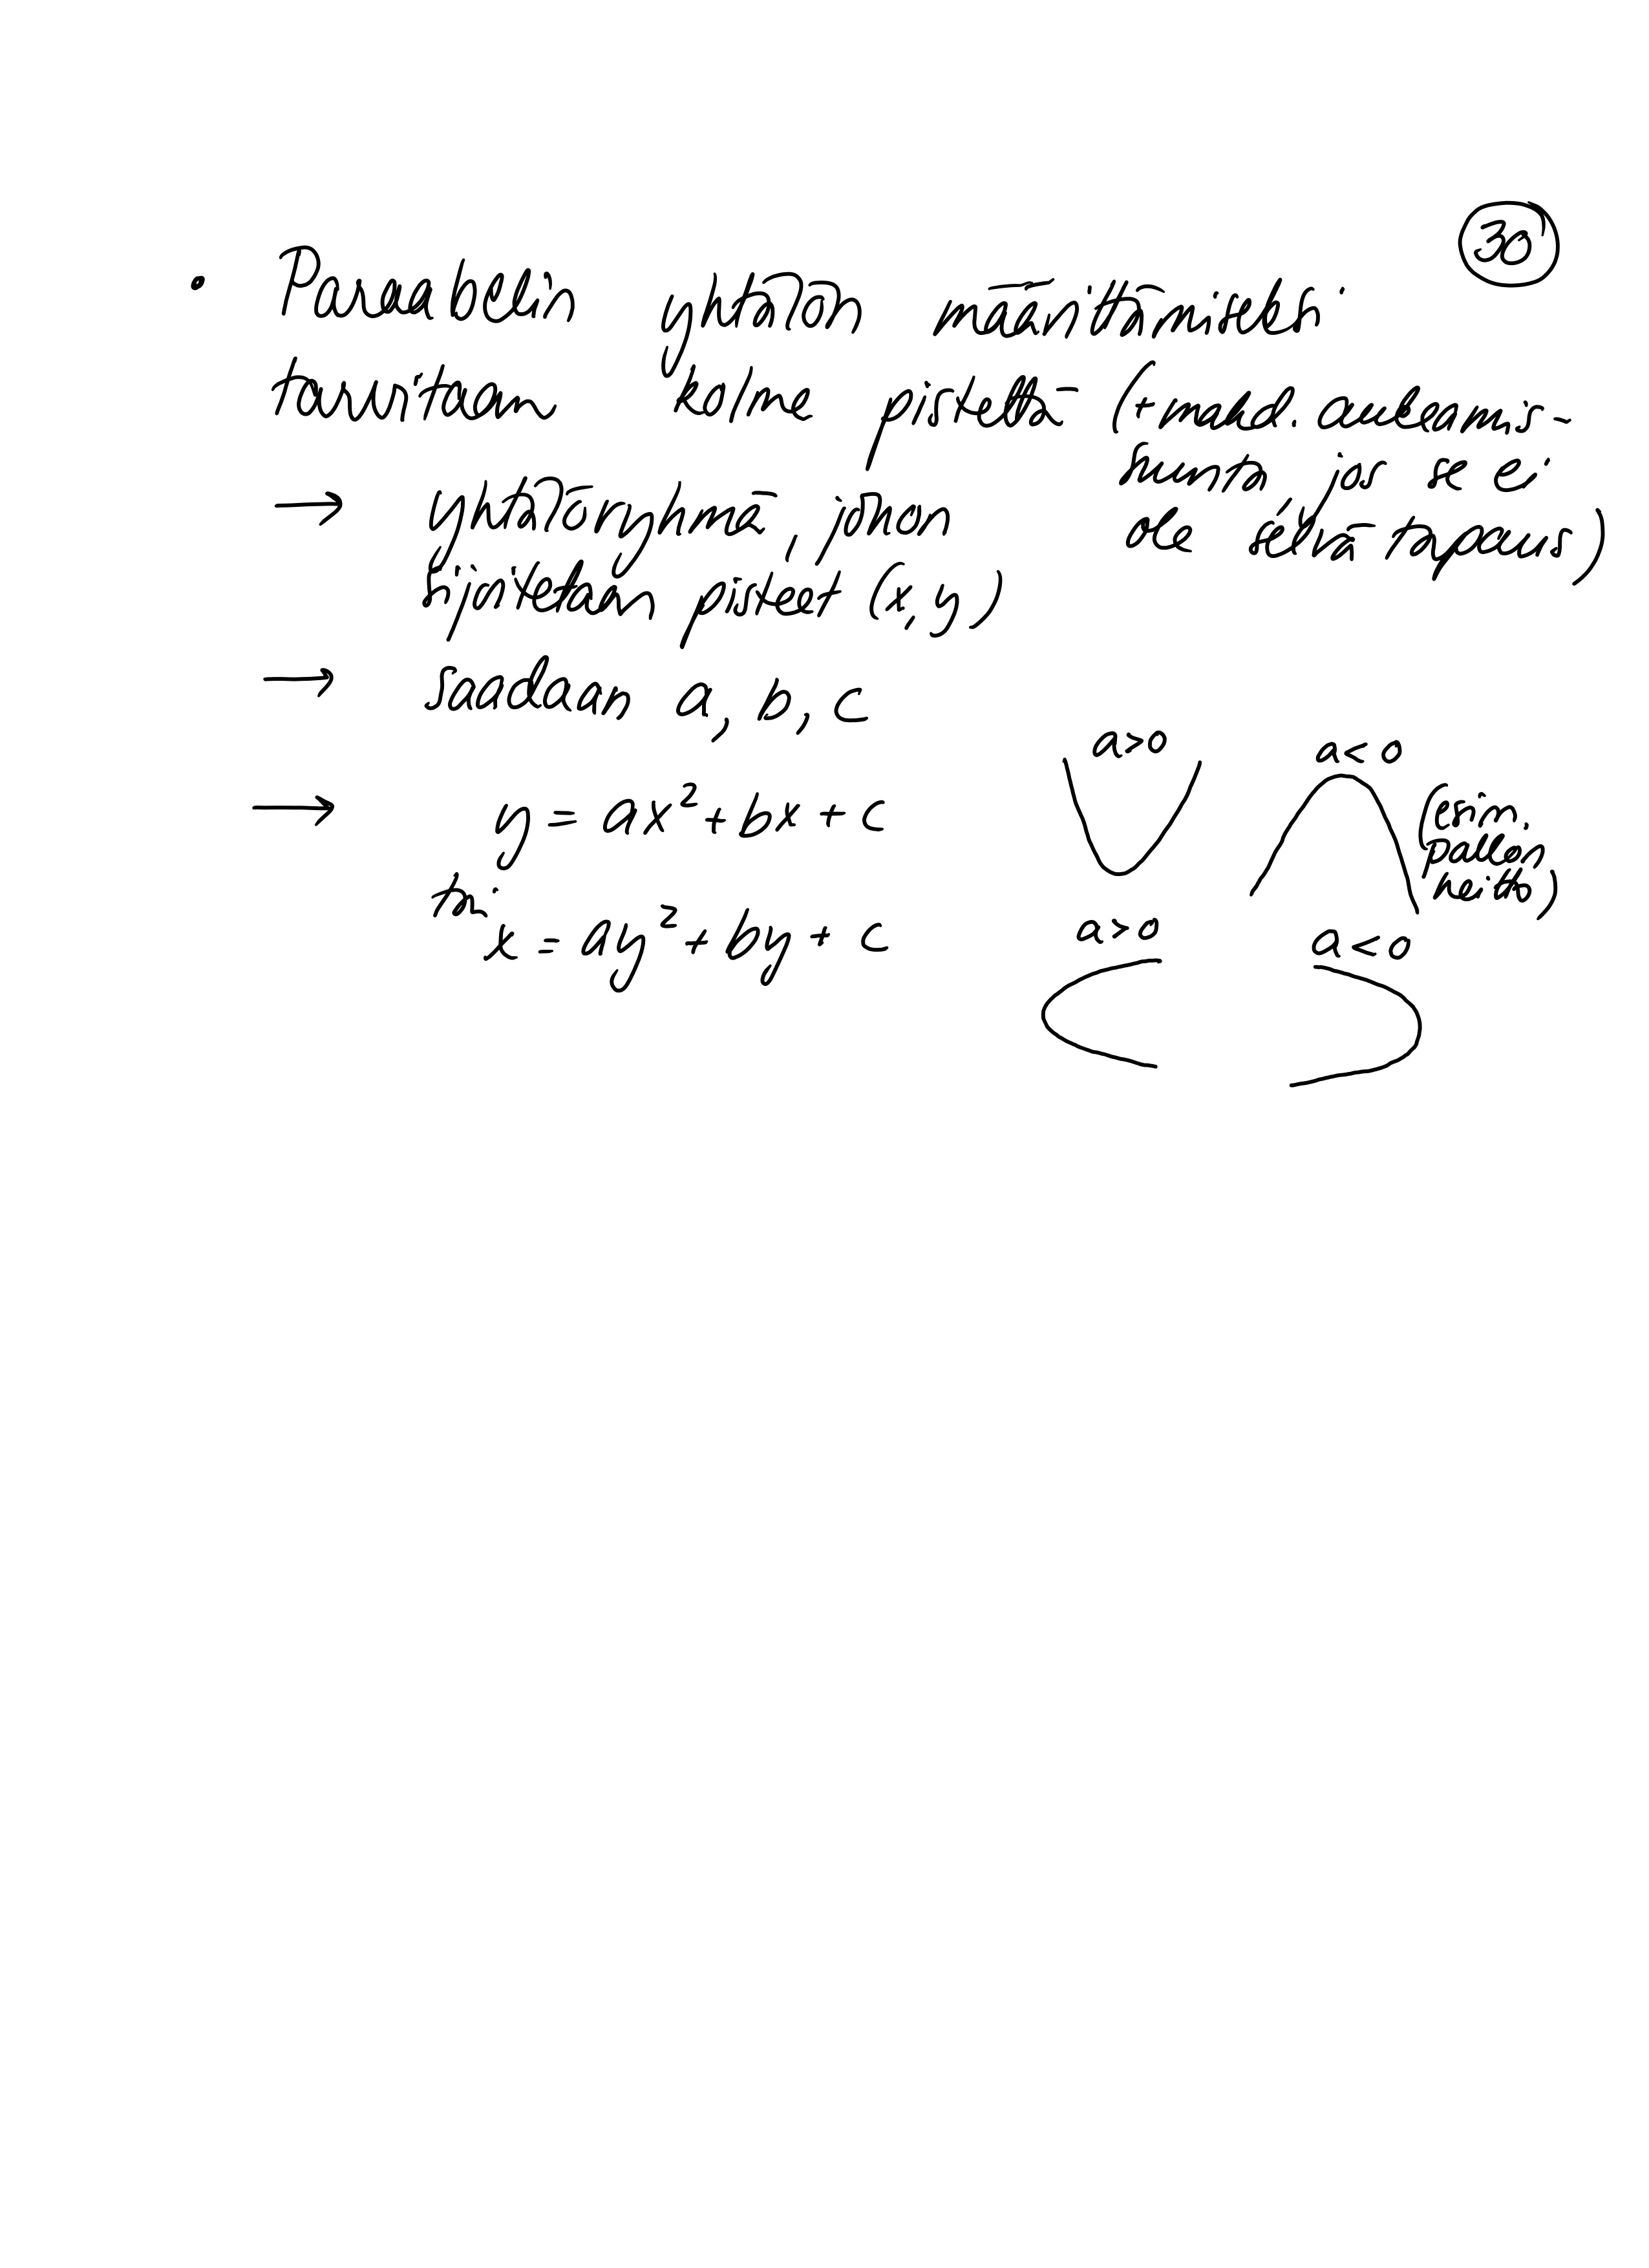 30
• Paraabelin yhtälön määrittämiseksi
tarvitaan kolme pistettä (+ mahd. aukeamis-
suunta, jos se ei
ole selvä tapaus)
→ yhtälöryhmä, johon
sijoitetaan pisteet (x,y)
→ saadaan a, b, c
→ y = ax² + bx + c
tai
x = ay² + by + c
a>0
a<0
(esim.
pallon
heitto)
a>0
a<0